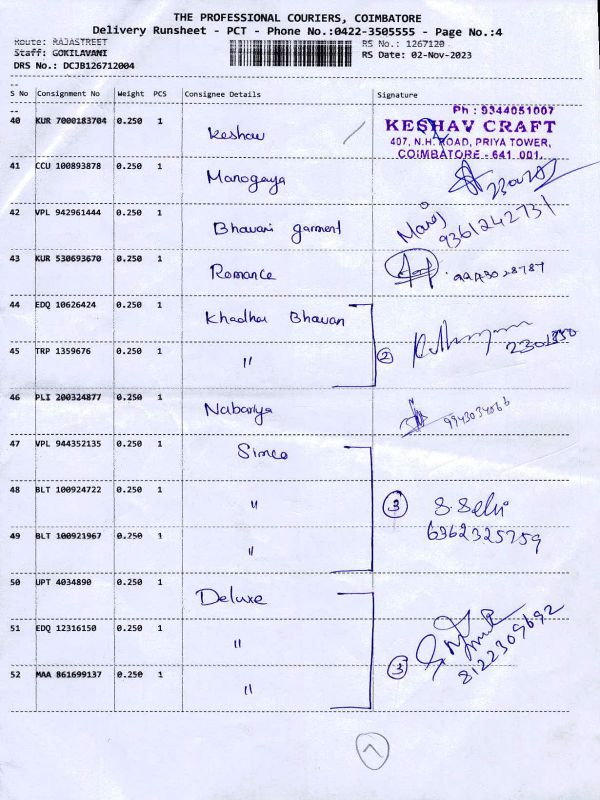 THE PROFESSIONAL COURIERS, COIMBATORE
Delivery Runsheet - PCT - Phone No.:0422-3505555 - Page No.:4
Route: RAJASTREET RS No.: 1267120
Staff: GOKILAVANI RS Date: 02-Nov-2023
DRS No.: DCJB126712004
S No Consignment No Weight PCS Consignee Details Signature
40 KUR 7000183704 0.250 1 Keshav
Ph : 9344051007
KESHAV CRAFT
407, N.H. ROAD, PRIYA TOWER,
COIMBATORE - 641 001.
41 CCU 100893878 0.250 1 Manogaya
42 VPL 942961444 0.250 1 Bhavani garment
9361242731
43 KUR 530693670 0.250 1 Romance
9443028787
44 EDQ 10626424 0.250 1 Khadhar Bhavan
45 TRP 1359676 0.250 1 " 2
46 PLI 200324877 0.250 1 Nabariya
9943034066
47 VPL 944352135 0.250 1 Simco
48 BLT 100924722 0.250 1 " 3 S. Selvi
6362325759
49 BLT 100921967 0.250 1 "
50 UPT 4034890 0.250 1 Deluxe
51 EDQ 12316150 0.250 1 " 3
8122309692
52 MAA 861699137 0.250 1 "